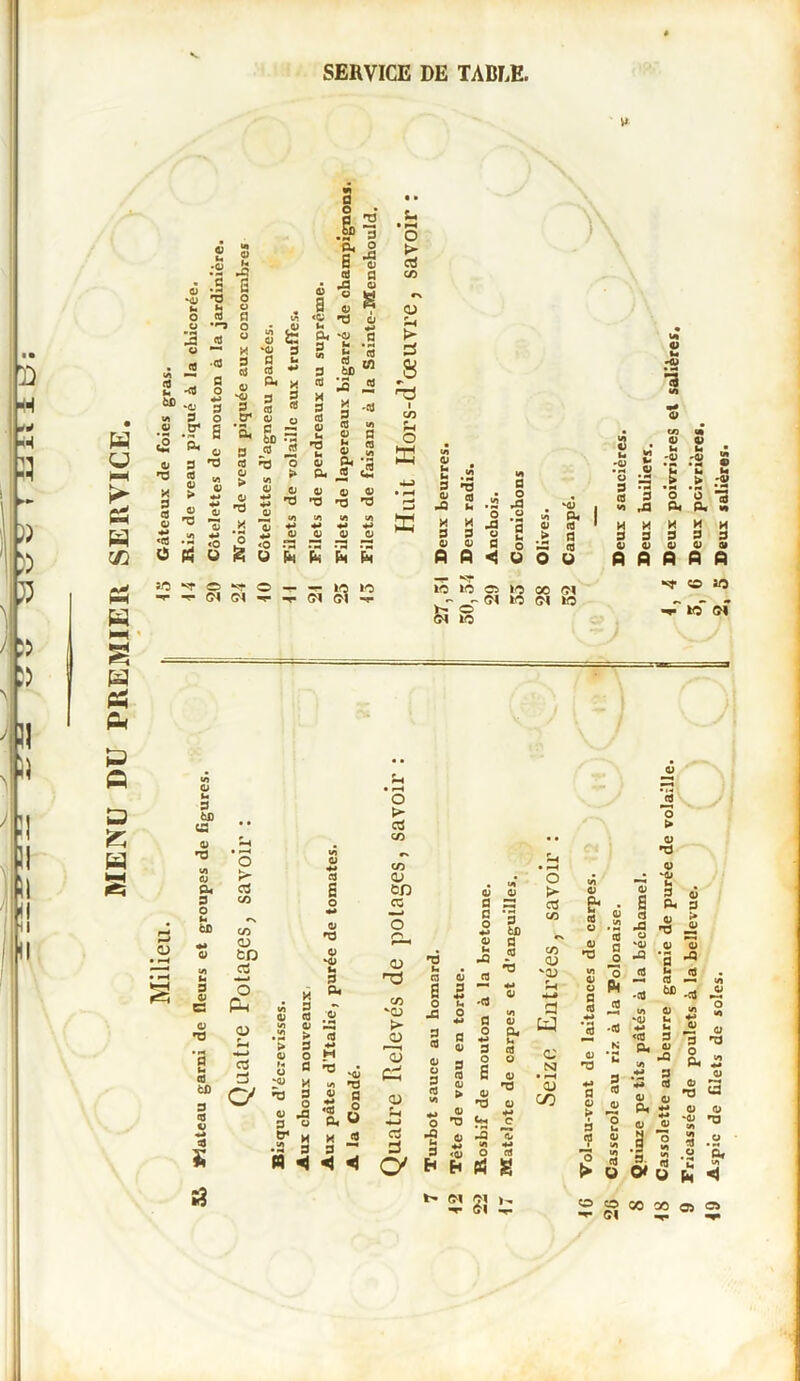 SERVICE DE TABLE.
MENU DU PREMIER SERVICE.
Milieu.
Plateau garni de fleurs et groupes de figures.
Quatre Potages, savoir :
Bisque d'écrevisses.
Aux choux nouveaux.
Aux pâtes d'Italie, purée de tomates.
A la Condé.
Quatre Relevés de potages, savoir :
7 Turbot sauce au homard.
12 Tête de veau en tortue.
22 Rosbif de mouton à la bretonne.
17 Matelote de carpes et d'anguilles.
Seize Entrées, savoir :
16 Vol-au-vent de laitances de carpes.
26 Casserole au riz à la Polonaise.
8 Quinze petits pâtés à la béchamel.
18 Cassolette au beurre garnie de purée de volaille.
9 Fricassée de poulets à la bellevue.
19 Aspic de filets de soles.
13 Gâteaux de foies gras.
14 Ris de veau piqué à la chicorée.
20 Côtelettes de mouton à la jardinière.
24 Noix de veau piquée aux concombres
10 Côtelettes d'agneau panées.
11 Filets de volaille aux truffes.
21 Filets de perdreaux au suprême.
25 Filets de lapereaux bigarré de champignons.
15 Filets de faisans à la Sainte-Menehould.
Huit Hors-d'œuvre, savoir :
27, 31 Deux beurres.
30, 34 Deux radis.
29 Anchois.
33 Cornichons
28 Olives.
32 Canapé.
Deux saucières.
Deux huiliers.
1, 4 Deux poivrières et salières.
3, 6 Deux poivrières.
2, 5 Deux salières.